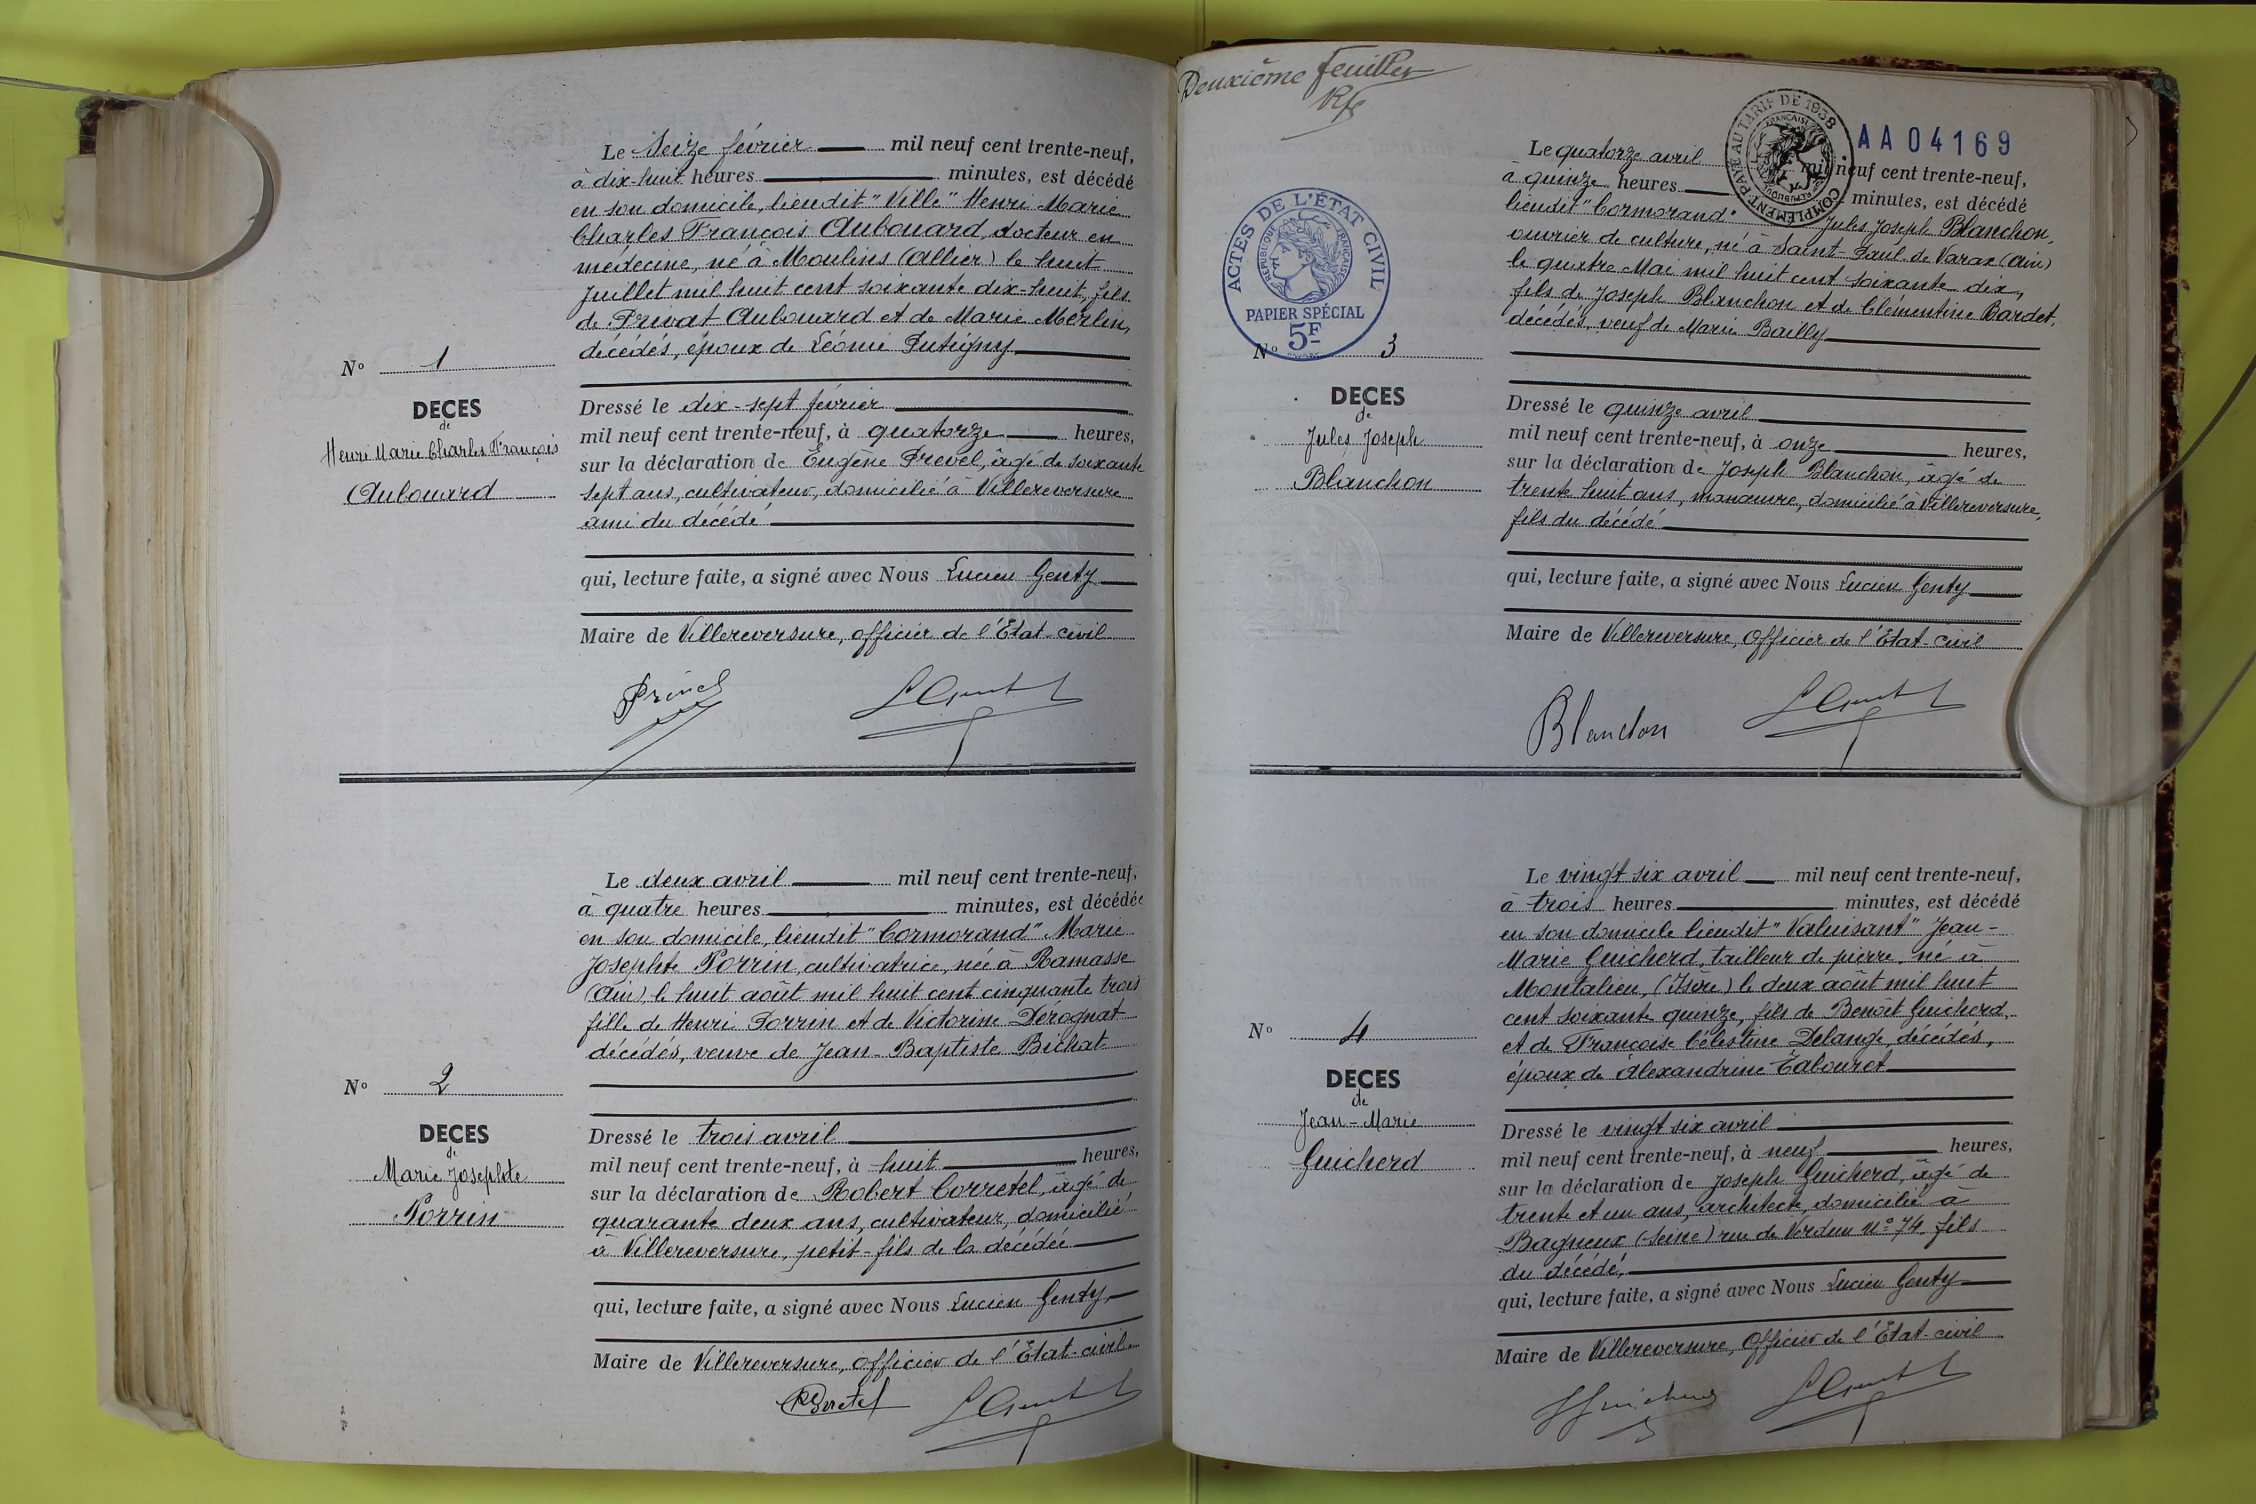 Le Seize février mil neuf cent trente-neuf,
à dix-huit heures minutes, est décédé
en son domicile, lieudit "Ville" Henri Marie
Charles François Aubouard, docteur en
médecine, né à Moulins (Allier) le huit
Juillet mil huit cent soixante dix-huit, fils
de Privat Aubouard et de Marie Merlin,
décédés, époux de Léonie Dutigny
N° 1
DECES
de
Henri Marie Charles François
Aubouard
Dressé le dix-sept février
mil neuf cent trente-neuf, à quatorze heures,
sur la déclaration de Eugène Prevel, âgé de soixante
sept ans, cultivateur, domicilié à Villereversure
ami du décédé
qui, lecture faite, a signé avec Nous Lucien Genty
Maire de Villereversure, officier de l'Etat-civil
Le deux avril mil neuf cent trente-neuf,
à quatre heures minutes, est décédée
en son domicile, lieudit "Cormorand" Marie
Josephte Porrin, cultivatrice, née à Ramasse
(Ain), le huit août mil huit cent cinquante trois
fille de Henri Porrin et de Victorine Dérognat
décédés, veuve de Jean-Baptiste Bichat
N° 2
DECES
de
Marie Josephte
Porrin
Dressé le trois avril
mil neuf cent trente-neuf, à huit heures,
sur la déclaration de Robert Corretel, âgé de
quarante deux ans, cultivateur, domicilié
à Villereversure, petit-fils de la décédée
qui, lecture faite, a signé avec Nous Lucien Genty
Maire de Villereversure, officier de l'Etat-civil
Deuxième feuillet
PAYÉ AU TARIF DE 1938
COMPLÉMENT
AA04169
ACTES DE L'ÉTAT CIVIL
RÉPUBLIQUE FRANÇAISE
PAPIER SPÉCIAL
5F
Le quatorze avril mil neuf cent trente-neuf,
à quinze heures minutes, est décédé
lieudit "Cormorand" Jules Joseph Blanchon,
ouvrier de culture, né à Saint-Paul de Varax (Ain)
le quatre Mai mil huit cent soixante dix,
fils de Joseph Blanchon et de Clémentine Bardet,
décédés, veuf de Marie Bailly
N° 3
DECES
de
Jules Joseph
Blanchon
Dressé le quinze avril
mil neuf cent trente-neuf, à onze heures,
sur la déclaration de Joseph Blanchon, âgé de
trente huit ans, manœuvre, domicilié à Villereversure,
fils du décédé
qui, lecture faite, a signé avec Nous Lucien Genty
Maire de Villereversure, Officier de l'Etat-civil
Blanchon
Le vingt six avril mil neuf cent trente-neuf,
à trois heures minutes, est décédé
en son domicile lieudit "Valuisant" Jean-
Marie Guicherd, tailleur de pierre, né à
Montalieu, (Isère) le deux août mil huit
cent soixante quinze, fils de Benoît Guicherd,
et de Françoise Célestine Delange, décédés,
époux de Alexandrine Tabouret
N° 4
DECES
de
Jean-Marie
Guicherd
Dressé le vingt six avril
mil neuf cent trente-neuf, à neuf heures,
sur la déclaration de Joseph Guicherd, âgé de
trente et un ans, architecte, domicilié à
Bagneux (Seine) rue de Verdun N° 74, fils
du décédé,
qui, lecture faite, a signé avec Nous Lucien Genty
Maire de Villereversure, Officier de l'Etat-civil